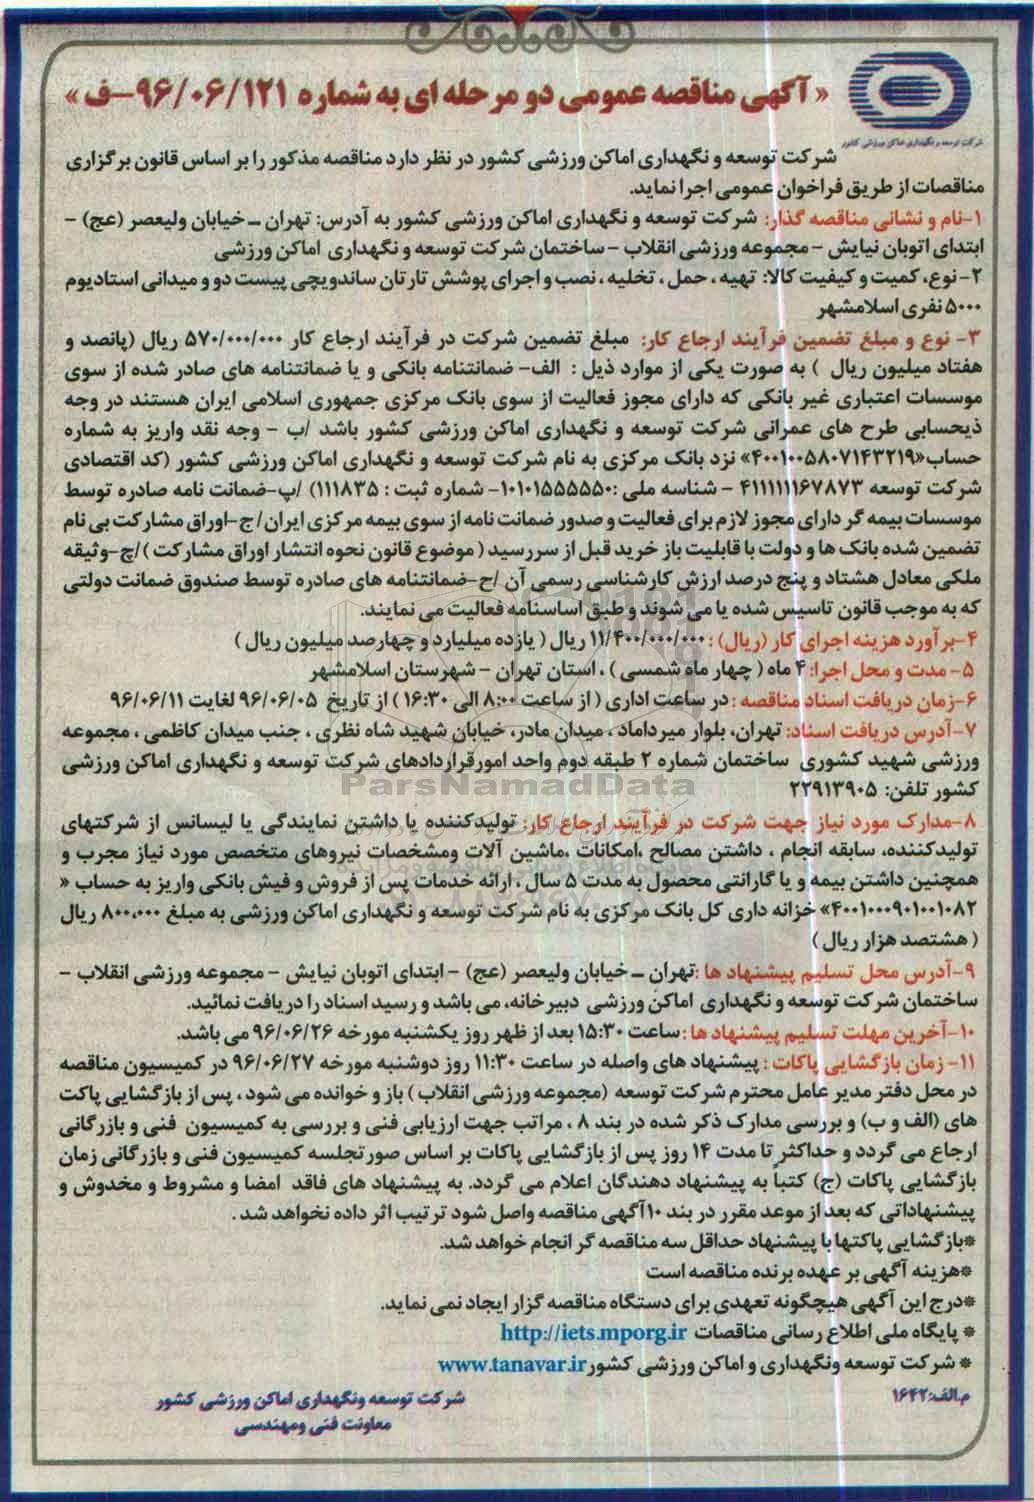 « آگهی مناقصه عمومی دو مرحله ای به شماره ۹۶/۰۶/۱۲۱-ف »
شرکت توسعه و نگهداری اماکن ورزشی کشور
شرکت توسعه و نگهداری اماکن ورزشی کشور در نظر دارد مناقصه مذکور را بر اساس قانون برگزاری
مناقصات از طریق فراخوان عمومی اجرا نماید.
۱-نام و نشانی مناقصه گذار: شرکت توسعه و نگهداری اماکن ورزشی کشور به آدرس: تهران – خیابان ولیعصر (عج) –
ابتدای اتوبان نیایش – مجموعه ورزشی انقلاب – ساختمان شرکت توسعه و نگهداری اماکن ورزشی
۲- نوع، کمیت و کیفیت کالا: تهیه ، حمل ، تخلیه ، نصب و اجرای پوشش تارتان ساندویچی پیست دو و میدانی استادیوم
۵۰۰۰ نفری اسلامشهر
۳- نوع و مبلغ تضمین فرآیند ارجاع کار: مبلغ تضمین شرکت در فرآیند ارجاع کار ۵۷۰/۰۰۰/۰۰۰ ریال (پانصد و
هفتاد میلیون ریال ) به صورت یکی از موارد ذیل : الف- ضمانتنامه بانکی و یا ضمانتنامه های صادر شده از سوی
موسسات اعتباری غیر بانکی که دارای مجوز فعالیت از سوی بانک مرکزی جمهوری اسلامی ایران هستند در وجه
ذیحسابی طرح های عمرانی شرکت توسعه و نگهداری اماکن ورزشی کشور باشد /ب – وجه نقد واریز به شماره
حساب«۴۰۰۱۰۰۵۸۰۷۱۴۳۲۱۹» نزد بانک مرکزی به نام شرکت توسعه و نگهداری اماکن ورزشی کشور (کد اقتصادی
شرکت توسعه ۴۱۱۱۱۱۱۶۷۸۷۳ – شناسه ملی :۱۰۱۰۱۵۵۵۵۵۰- شماره ثبت : ۱۱۱۸۳۵) /پ-ضمانت نامه صادره توسط
موسسات بیمه گر دارای مجوز لازم برای فعالیت و صدور ضمانت نامه از سوی بیمه مرکزی ایران/ ج-اوراق مشارکت بی نام
تضمین شده بانک ها و دولت با قابلیت باز خرید قبل از سررسید ( موضوع قانون نحوه انتشار اوراق مشارکت )/چ-وثیقه
ملکی معادل هشتاد و پنج درصد ارزش کارشناسی رسمی آن /ح-ضمانتنامه های صادره توسط صندوق ضمانت دولتی
که به موجب قانون تاسیس شده یا می شوند و طبق اساسنامه فعالیت می نمایند.
۴-برآورد هزینه اجرای کار (ریال) : ۱۱/۴۰۰/۰۰۰/۰۰۰ ریال ( یازده میلیارد و چهارصد میلیون ریال )
۵- مدت و محل اجرا: ۴ ماه ( چهار ماه شمسی ) ، استان تهران – شهرستان اسلامشهر
۶-زمان دریافت اسناد مناقصه : در ساعت اداری ( از ساعت ۸:۰۰ الی ۱۶:۳۰ ) از تاریخ ۹۶/۰۶/۰۵ لغایت ۹۶/۰۶/۱۱
۷-آدرس دریافت اسناد: تهران، بلوار میرداماد ، میدان مادر، خیابان شهید شاه نظری ، جنب میدان کاظمی ، مجموعه
ورزشی شهید کشوری ساختمان شماره ۲ طبقه دوم واحد امورقراردادهای شرکت توسعه و نگهداری اماکن ورزشی
کشور تلفن: ۲۲۹۱۳۹۰۵
ParsNamadData
۸-مدارک مورد نیاز جهت شرکت در فرآیند ارجاع کار: تولیدکننده یا داشتن نمایندگی یا لیسانس از شرکتهای
تولیدکننده، سابقه انجام ، داشتن مصالح ،امکانات ،ماشین آلات ومشخصات نیروهای متخصص مورد نیاز مجرب و
همچنین داشتن بیمه و یا گارانتی محصول به مدت ۵ سال ، ارائه خدمات پس از فروش و فیش بانکی واریز به حساب «
۴۰۰۱۰۰۰۹۰۱۰۰۱۰۸۲» خزانه داری کل بانک مرکزی به نام شرکت توسعه و نگهداری اماکن ورزشی به مبلغ ۸۰۰،۰۰۰ ریال
( هشتصد هزار ریال )
۹-آدرس محل تسلیم پیشنهاد ها :تهران – خیابان ولیعصر (عج) – ابتدای اتوبان نیایش – مجموعه ورزشی انقلاب –
ساختمان شرکت توسعه و نگهداری اماکن ورزشی دبیرخانه، می باشد و رسید اسناد را دریافت نمائید.
۱۰-آخرین مهلت تسلیم پیشنهاد ها : ساعت ۱۵:۳۰ بعد از ظهر روز یکشنبه مورخه ۹۶/۰۶/۲۶ می باشد.
۱۱- زمان بازگشایی پاکات : پیشنهاد های واصله در ساعت ۱۱:۳۰ روز دوشنبه مورخه ۹۶/۰۶/۲۷ در کمیسیون مناقصه
در محل دفتر مدیر عامل محترم شرکت توسعه (مجموعه ورزشی انقلاب ) باز و خوانده می شود ، پس از بازگشایی پاکت
های (الف و ب) و بررسی مدارک ذکر شده در بند ۸ ، مراتب جهت ارزیابی فنی و بررسی به کمیسیون فنی و بازرگانی
ارجاع می گردد و حداکثر تا مدت ۱۴ روز پس از بازگشایی پاکات بر اساس صورتجلسه کمیسیون فنی و بازرگانی زمان
بازگشایی پاکات (ج) کتباً به پیشنهاد دهندگان اعلام می گردد. به پیشنهاد های فاقد امضا و مشروط و مخدوش و
پیشنهاداتی که بعد از موعد مقرر در بند ۱۰آگهی مناقصه واصل شود ترتیب اثر داده نخواهد شد .
*بازگشایی پاکتها با پیشنهاد حداقل سه مناقصه گر انجام خواهد شد.
*هزینه آگهی بر عهده برنده مناقصه است
*درج این آگهی هیچگونه تعهدی برای دستگاه مناقصه گزار ایجاد نمی نماید.
* پایگاه ملی اطلاع رسانی مناقصات http://iets.mporg.ir
* شرکت توسعه ونگهداری و اماکن ورزشی کشور www.tanavar.ir
م.الف:۱۶۴۲
شرکت توسعه ونگهداری اماکن ورزشی کشور
معاونت فنی ومهندسی